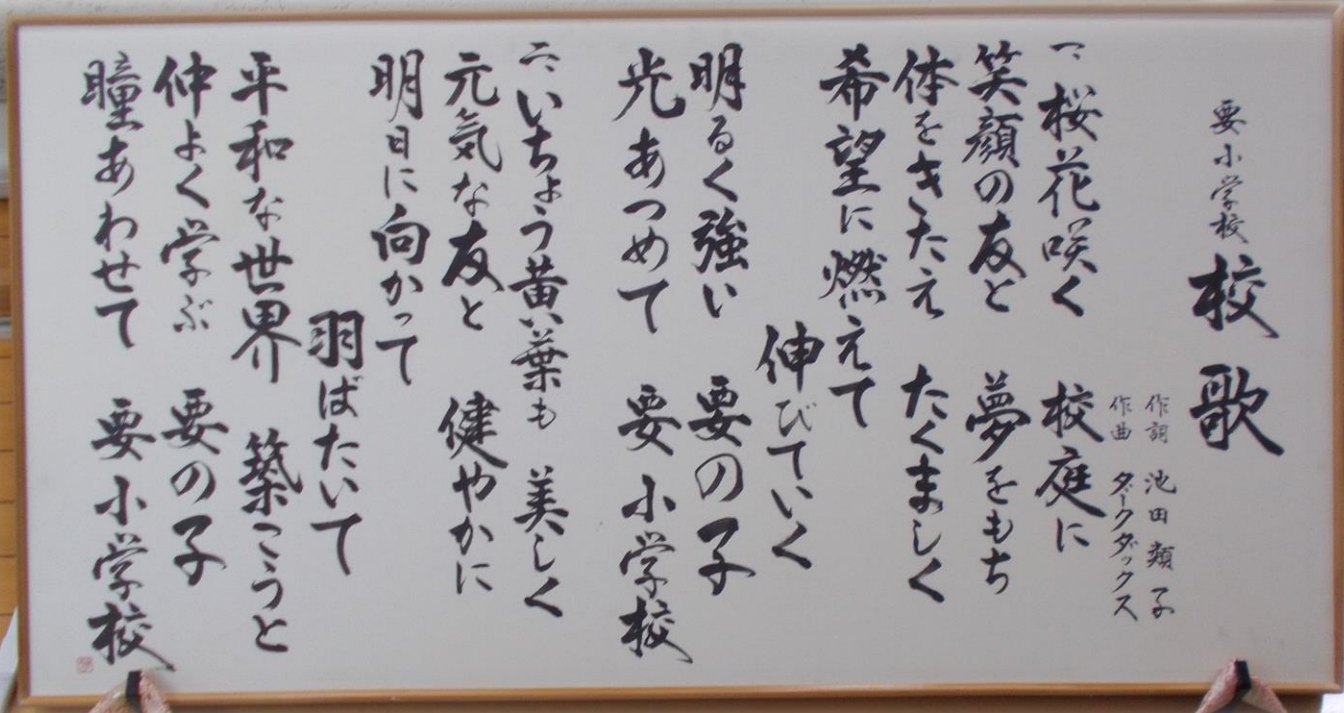 要小学校 校歌
作詞 池田類子
作曲 ダークダックス
一、桜花咲く 校庭に
笑顔の友と 夢をもち
体をきたえ たくましく
希望に燃えて
伸びていく
明るく強い 要の子
光あつめて 要小学校
二、いちょう黄葉も 美しく
元気な友と 健やかに
明日に向かって
羽ばたいて
平和な世界 築こうと
仲よく学ぶ 要の子
瞳あわせて 要小学校